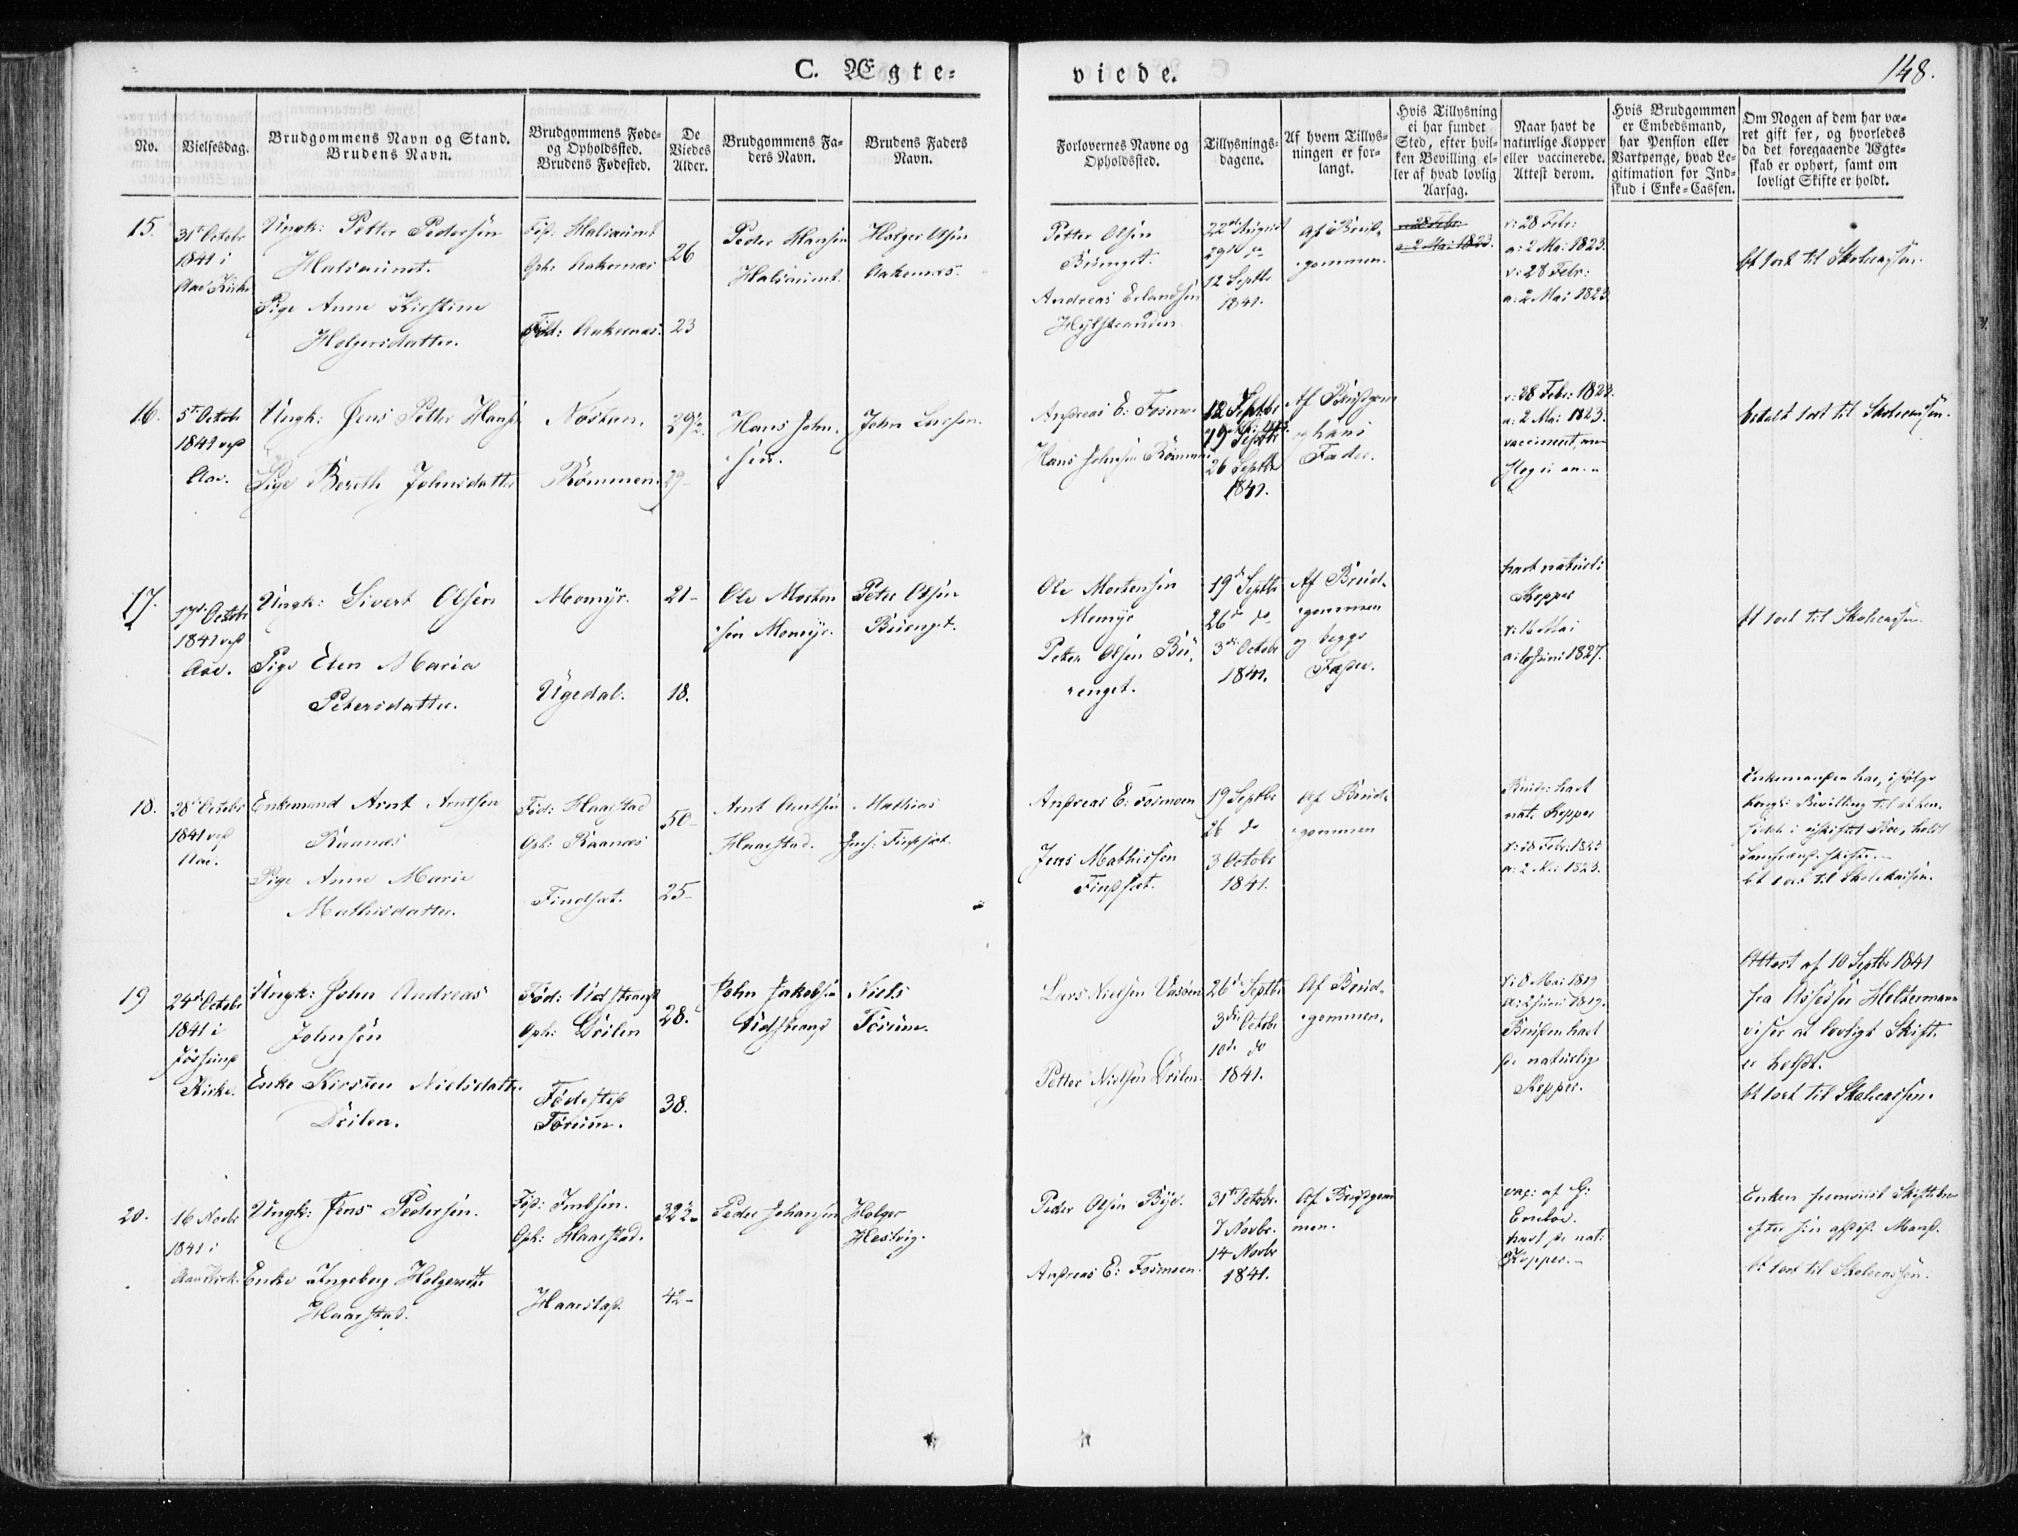 C. Ægte=
viede.
148.
No.
Vielsesdag.
Brudgommens Navn og Stand.
Brudens Navn.
Brudgommens Føde=
og Opholdssted.
Brudens Fødested.
De
Viedes
Alder.
Brudgommens Fa=
ders Navn.
Brudens Faders
Navn.
Forlovernes Navne og
Opholdssted.
Tillysnings=
dagene.
Af hvem Tillys=
ningen er for=
langt.
Hvis Tillysning
ei har fundet
Sted, efter hvil=
ken Bevilling el=
ler af hvad lovlig
Aarsag.
Naar havt de
naturlige Kopper
eller vaccinerede.
Attest derom.
Hvis Brudgommen
er Embedsmand,
har Pension eller
Vartpenge, hvad Le=
gitimation for Ind=
skud i Enke=Cassen.
Om Nogen af dem har væ=
ret gift før, og hvorledes
da det foregaaende Ægte=
skab er ophørt, samt om
lovligt Skifte er holdt.
15.
31te Octobr
1841 i
Aae Kirke
Ungk: Petter Pedersen
Pige Anne Kirstine
Holgersdatter.
Oph: Aakernæs
Fød: Aakernæs.
26
23
Peder Hansen
Holger Olsen
Aakernæs.
Petter Olsen
Buenget.
Andreas Erlandsen
22de August
29de do
12 Septbr
1841.
Af Brud=
gommen.
28 Febr:
a: 2 Mai 1823.
v: 28 Febr:
a: 2 Mai 1823.
v: 28 Febr:
a: 2 Mai 1823.
bt 1 ort til Skolecassen.
16.
5te Octobr
1841 ved
Aae.
Ungk: Jens Petter Hansen
Pige Bereth Johnsdatter
Rømmen.
29½.
29-
Hans John=
sen.
John Larsen.
Andreas E: Fosmoen
Hans Johnsen Rømmen
12 Septbr
19 Septbr
26 Septbr
1841.
Af Brudgom
og hans
Fader.
v: 28 Febr: 1823.
a: 2 Mai 1823.
betalt 1 ort til Skolecassen.
17.
17de Octobr
1841 ved
Aae.
Ungk: Sivert Olsen
Pige Elen Maria
Petersdatter.
Momyr.
Ugedal.
21-
18.
Ole Morten
sen Momyr.
Peter Olsen
Buenget.
Ole Mortensen
Momyr
Peter Olsen Bu=
enget.
19de Septbr
26de do
3die Octobr
1841.
Af Brud=
gommen
og begges
Fader.
havt naturl:
Kopper
v: 16 Mai
bt 1 ort til Skolecassen.
18.
28de Octobr
1841 ved
Aae.
Enkemand Arnt Arntsen
Raanæs
Pige Anne Marie
Mathisdatter.
Fød: Haarstad
Oph: Raanæs
Findsæt.
50-
25-
Arnt Arntsen
Haarstad.
Mathias
Andreas E: Fosmoen
Jens Mathissen
Findsæt.
19 Septbr
26 do
3 Octobr
1841.
Af Brud=
gommen
nat. Kopper
a: 2 Mai 1823.
bt 1 ort til Skolecassen.
19
24de Octobr
1841 i
Kirke.
Ungk: John Andreas
Johnsen
Enke Kirsten Nielsdatter
Drilen.
Fød: Vidstrand
Oph: Drilen
Fødested
Forum.
28.
38.
John Jakobsen
Vidstrand
Niels
Forum.
Lars Nielsen Vasøen
Petter Nielsen Drilen.
26de Septbr
3die Octobr
10de do
1841.
Af Brud=
gommen.
v: 8 Mai 1819
Bruden havt
de naturlige
Kopper.
Attest af 10 Septbr 1841
fra Assessor Holtermann
viser at lovligt Skifte
er holdt.
bt 1 ort til Skolecassen.
20.
16 Novbr
1841 i
Aae Kirke
Ungk: Jens Pedersen.
Enke Ingeborg Holgersdtr
Haarstad.
Oph: Haarstad.
Haarstad.
32½-
42-
Peder Johansen
Holger
Hestvig.
Peder Olsen Bye.
Andreas E: Fosmoen.
31te Octobr.
7 Novbr.
14 Novbr
1841.
Af Brudgom
men.
vac: af G:
havt de nat:
Kopper.
Enken fremviist Skiftebrev
efter sin afdøde Mand.
bt 1 ort til Skolecassen.